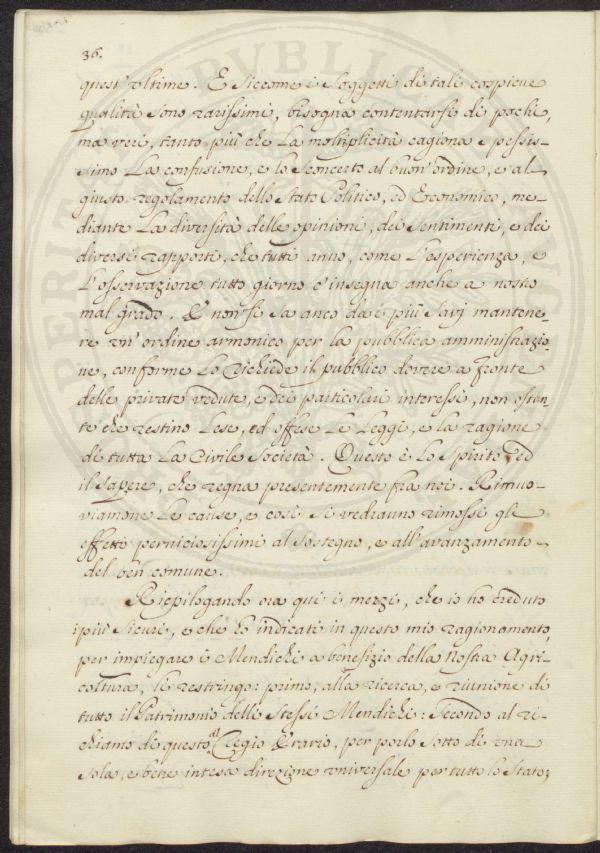 36.
quest'ultime. E siccome i Soggetti di tali cospicue
qualità sono rarissimi, bisogna contentarsi di pochi,
ma veri, tanto più che la moltiplicità cagiona spessis-
simo la confusione, e lo sconcerto al buon'ordine, e al
giusto regolamento dello Stato Politico, ed Economico, me-
diante la diversità delle opinioni, dei sentimenti, e dei
diversi rapporti, che tutti anno, come l'esperienza, e
l'osservazione tutto giorno c'insegna anche a nostro
mal grado. E non si sa anco dai più savj mantene-
re un'ordine armonico per la pubblica amministrazio-
ne, conforme lo richiede il pubblico dovere a fronte
delle private vedute, e dei particolari interessi, non ostan-
te che restino lese, ed offese le Leggi, e la ragione
di tutta la Civile Società. Questo è lo Spirito, ed
il sapere, che regna presentemente fra noi. Rimuo-
viamone le cause, e così si vedranno rimossi gli
effetti perniciosissimi al sostegno, e all'avanzamento
del ben comune.
Riepilogando ora quì i mezzi, che io ho creduto
i più sicuri, e che hò indicati in questo mio ragionamento,
per impiegare i Mendichi a benefizio della nostra Agri-
coltura, li restringo: primo, alla ricerca, e riunione di
tutto il Patrimonio delli stessi Mendichi: Secondo al ri-
chiamo di questo al Regio Erario, per porlo sotto di una
sola, e bene intesa direzione universale per tutto lo Stato;
PUBLIC